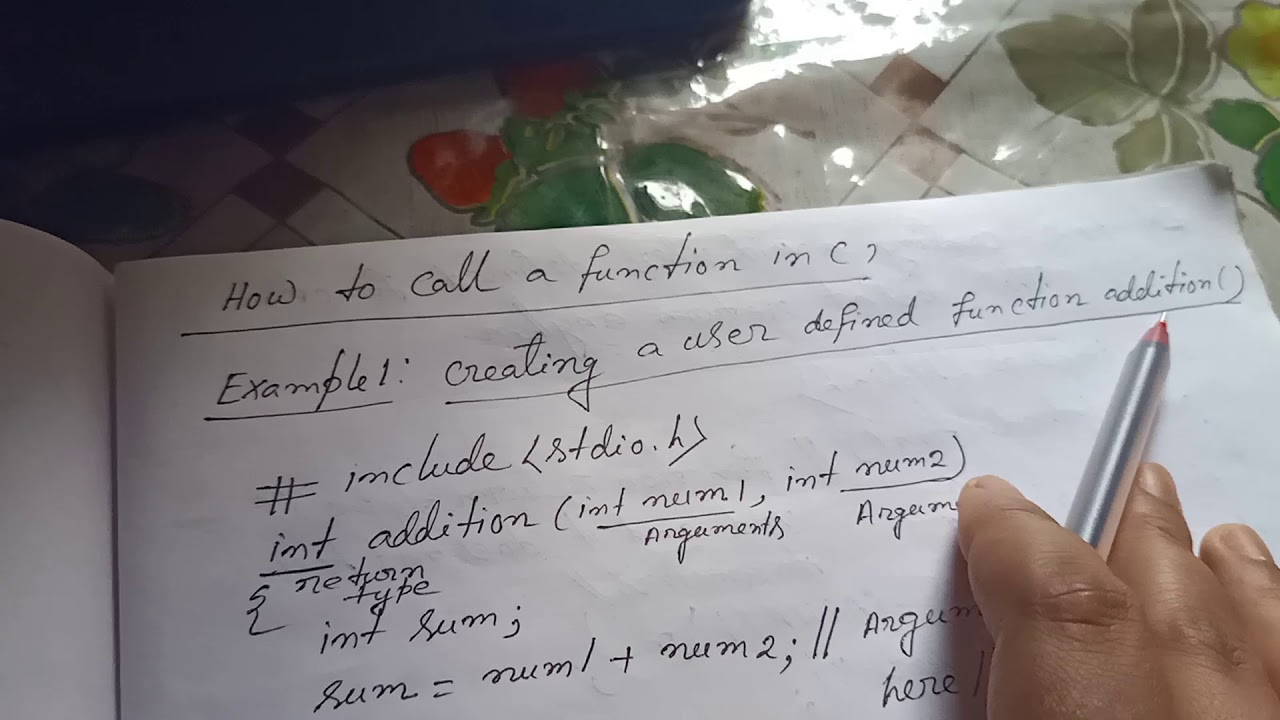 How to call a function in C,
Example1: creating a user defined function addition()
# include <stdio.h>
int addition (int num1, int num2)
return Arguments
type
{
int sum;
sum = num1 + num2; //
here